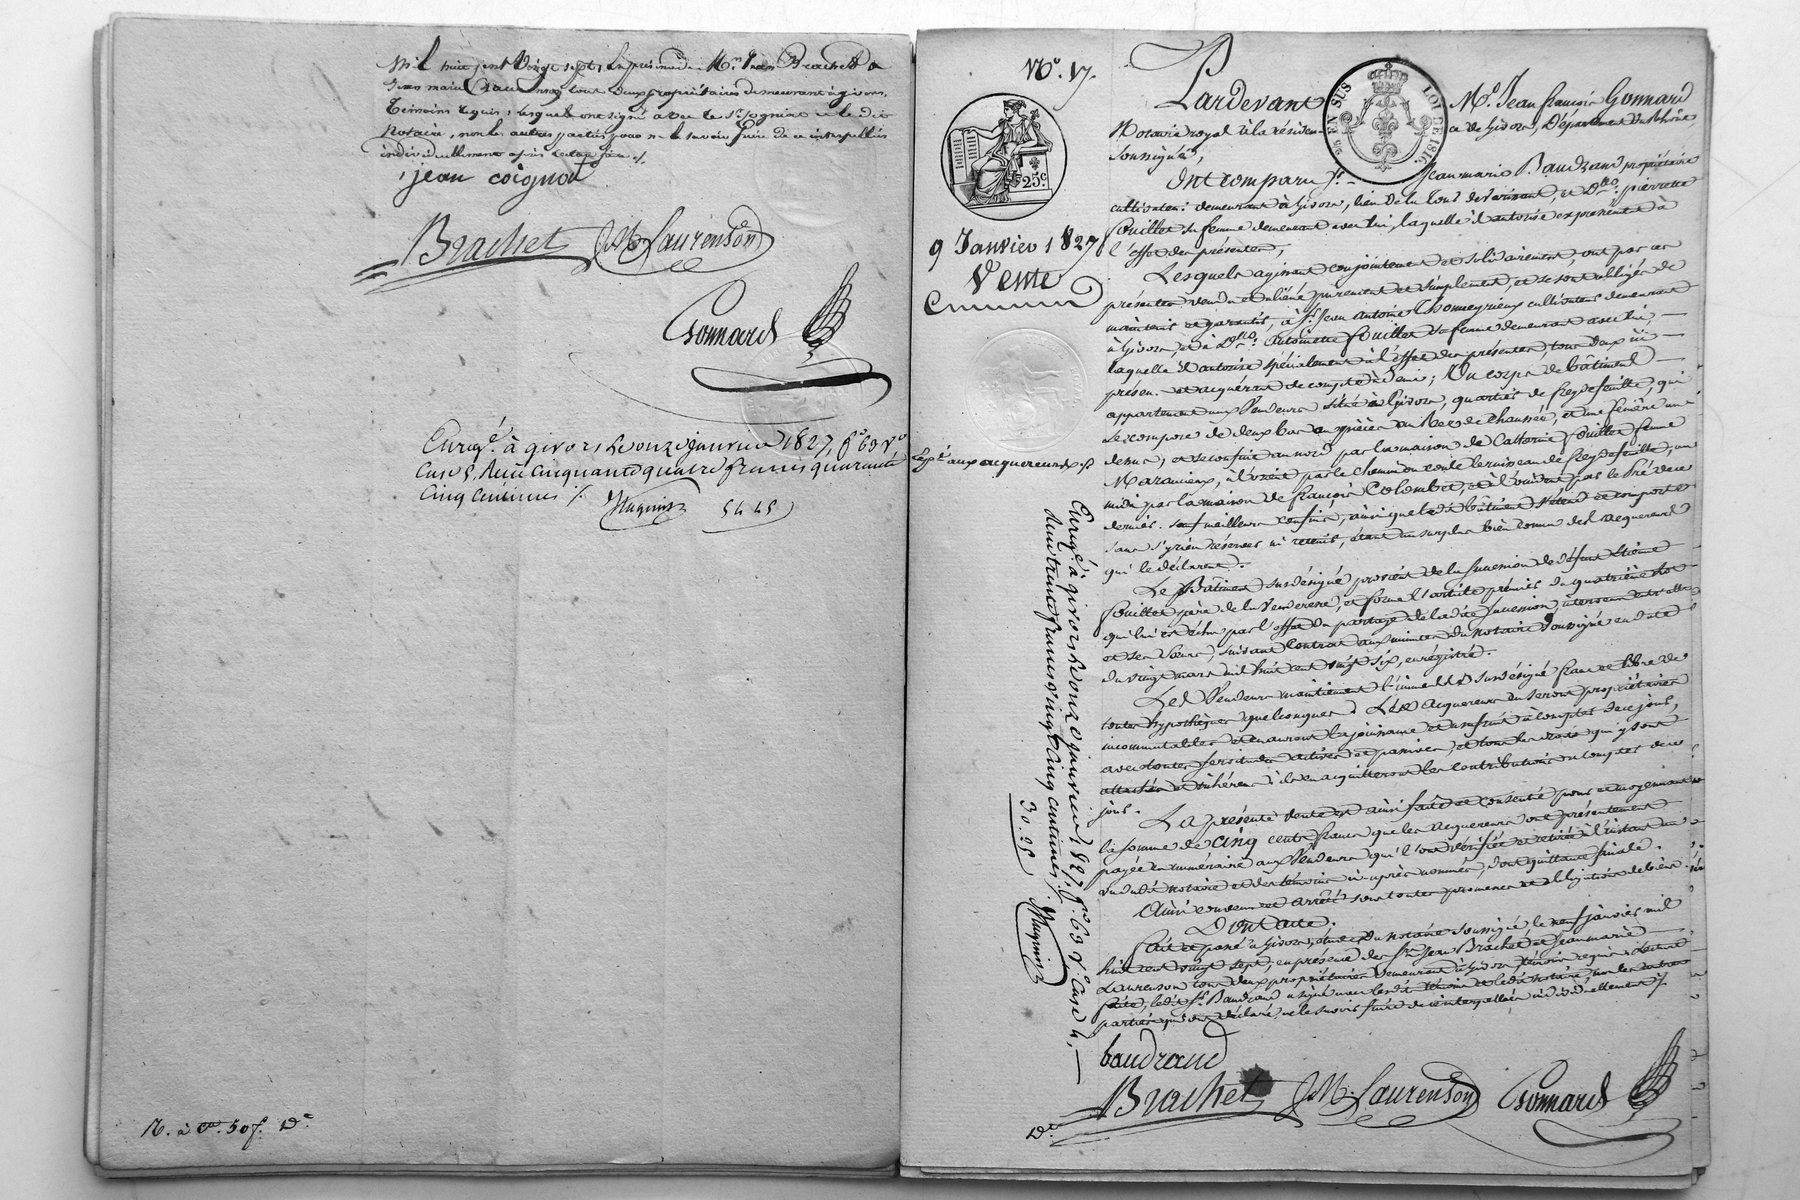 mil huit cent vingt sept, en présence de Mrs Jean Brachet &
Jean marie Laurenson, tous deux propriétaires demeurant à givors,
Témoins requis, lesquels ont signé avec le Sr Cognat et le dit
notaire, non les autres parties pour ne le savoir faire de ce interpellés
individuellement après lecture faite ./.
jean coignat
Brachet JM Laurenson
Gonnard
Enregé à givors le onze janvier 1827, fo 63 Vo
Case 5. Reçu cinquante quatre francs quarante
Cinq centimes ./.
54 45
R. à 50 f. De
No. 17.
25 EN SUS
LOI DE 1816.
25c
9 Janvier 1827
Vente
Expé aux acquereurs
Enregé à givors le onze janvier 1827, fo 63 Vo Case 4,
Reçu trente francs vingt cinq centimes ./.
30.25
Pardevant Me Jean françois Gonnard
Notaire royal à la résidence de Givors, Département du Rhône,
soussigné,
Ont comparu Sr Jean marie Baudrand propriétaire
cultivateur demeurant à Givors, lieu de et Dlle pierrette
fouillet sa femme demeurant avec lui, laquelle il autorise expressément à
l'effet des présentes,
Lesquels agissant conjointement et solidairement, ont par ces
présentes vendu et aliéné purement et simplement, et se sont obligés de
maintenir et garantir, à Sr Jean antoine cultivateur demeurant
à Givors, et à Dlle antoinette fouillet sa femme demeurant avec lui
laquelle il autorise spécialement à l'effet des présentes, tous deux ici
présens et acquérant de compte à demi; Un corps de bâtiment
appartenant aux Vendeurs situé à Givors, quartier de freydefeuille, qui
se compose de deux bas au rez de chaussée, et une fenière au
dessus, et se confine au nord par la maison de Catherine fouillet femme
à l'orient par le chemin ou coule le ruisseau de freydefeuille, au
midi par la maison de françois Colombet, et à l'occident par le Pré de ce
dernier. sauf meilleurs confins, ainsi que le dit bâtiment s'étend et comporte
sans s'y rien réserver ni retenir, étant au surplus bien connu des acquereurs
qui le déclarent.
Le Bâtiment susdésigné provient de la succession de défunt Etienne
fouillet père de la Venderesse, et forme l'article premier du quatrième lot
qui lui est échu par l'effet du partage de la dite succession, intervenu entre elle
et ses sœurs, suivant contrat aux minutes du notaire soussigné en date
du vingt mars mil huit cent vingt six, enregistré.
Les Vendeurs maintiennent l'immeuble susdésigné franc et libre de
toutes hypothèques quelconques. Les acquereurs en seront propriétaires
incommutables et en auront la jouissance et usufruit à compter de ce jour,
avec toutes servitudes actives et passives, et tous les droits qui y sont
attachés et inhérens; ils en acquitteront les contributions à compter de ce
jour.
La présente vente est ainsi faite et consentie pour et moyennant
la somme de cinq cents francs que les acquereurs ont présentement
payée en numéraire aux Vendeurs qui l'ont vérifiée et retirée à l'instant au
vu du dit notaire et des témoins ci-après nommés, dont quittance finale.
Ainsi convenu et arrêté sous toutes promesses et obligations de bien.
Dont acte.
Fait et passé à Givors, étude du Notaire soussigné le neuf janvier mil
huit cent vingt sept, en présence des Srs Jean Brachet et Jean marie
Laurenson tous deux propriétaires demeurant à Givors témoins requis. Lecture
faite, ledit Sr Baudrand a signé avec lesdits témoins et ledit notaire, non les autres
parties qui ont déclaré ne le savoir faire de ce interpellées individuellement ./.
baudrand
Brachet JM. Laurenson Gonnard
De